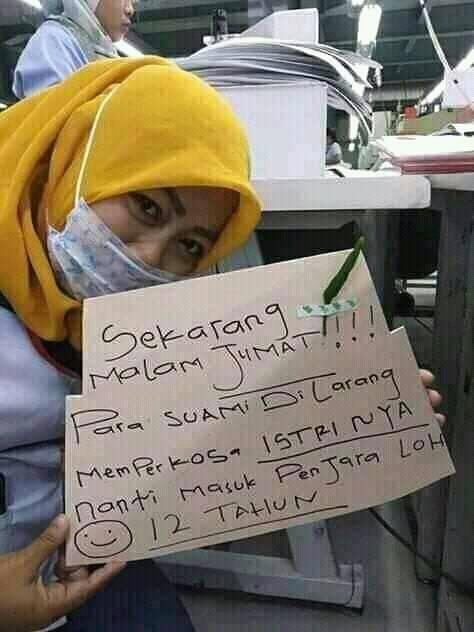 Sekarang
MALAM JUMAT!!!!
Para SUAMi DiLarang
MemPerKOSa ISTRI NYA
nanti Masuk PenJara LOH
12 TAHUN